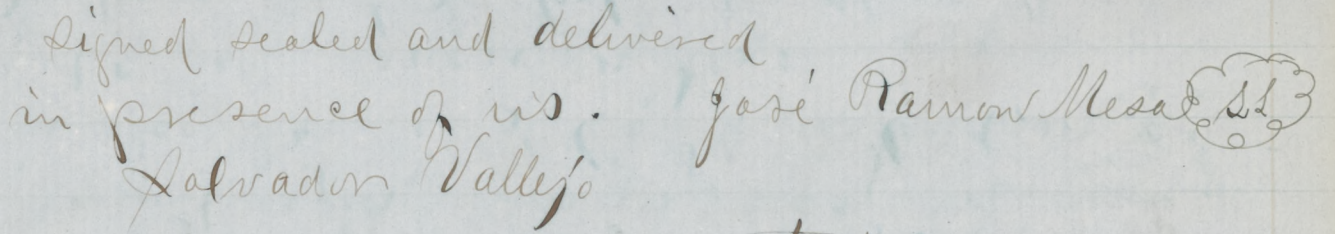 signed sealed and delivered
in presence of us. José Ramon Mesa LS
Salvador Vallejo